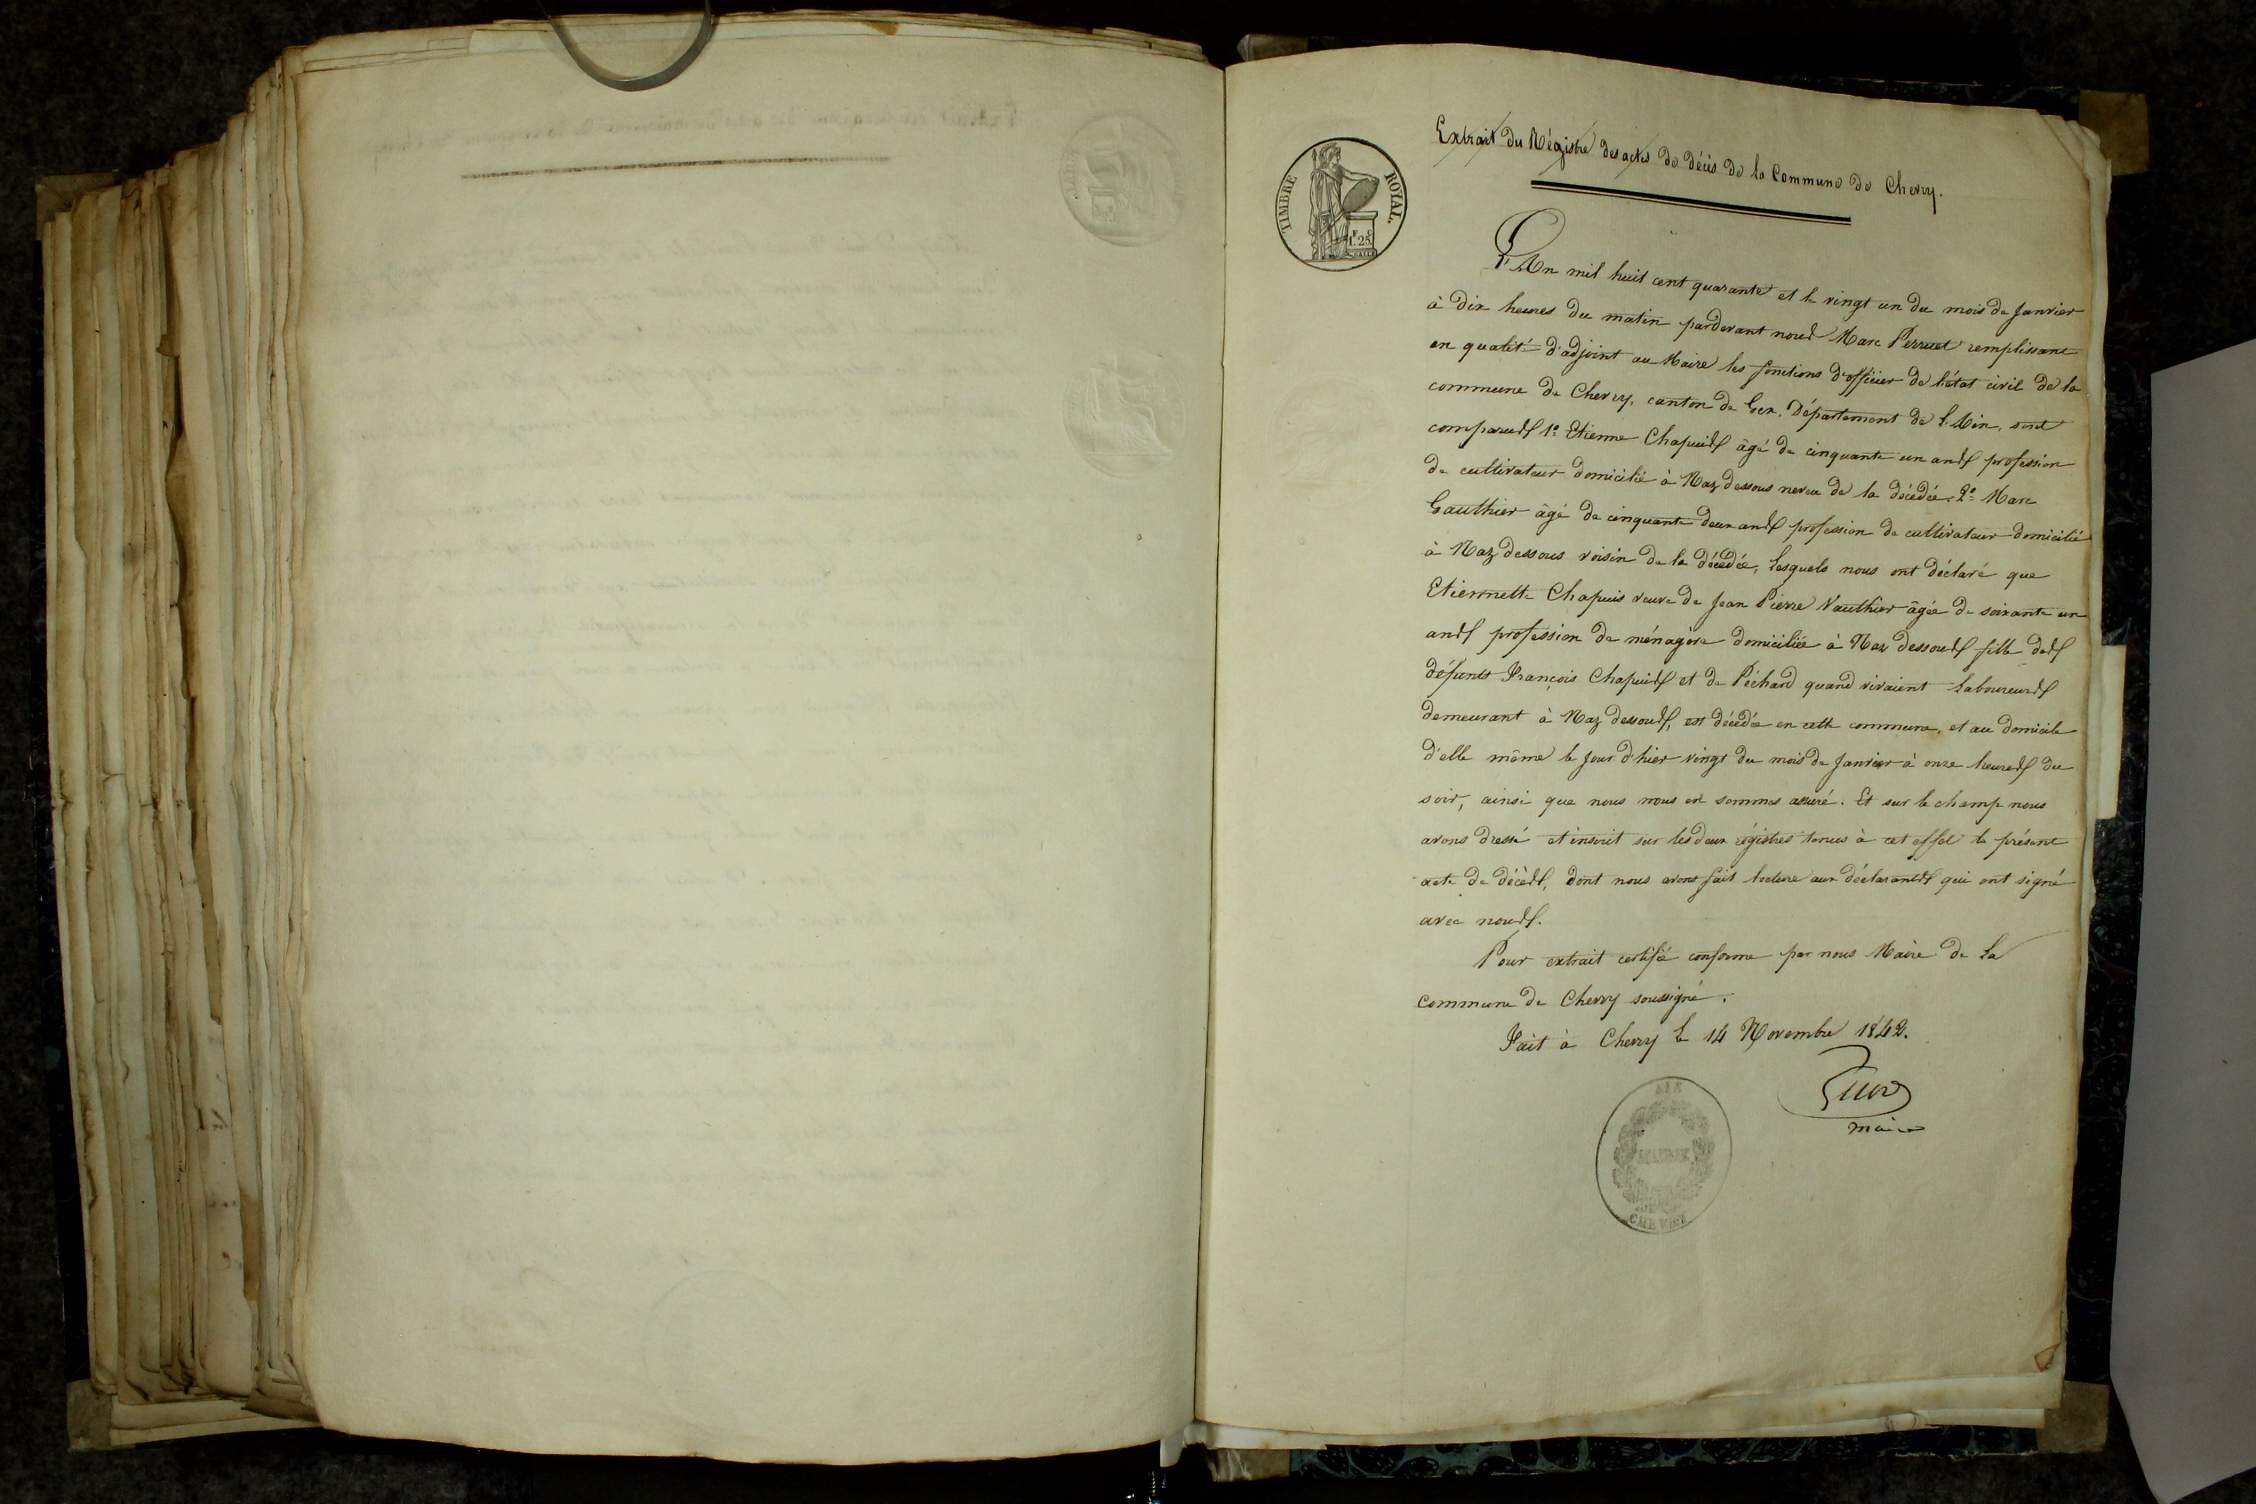 TIMBRE ROYAL.
1F 25C
Extrait du Régistre des actes de décès de la Commune de Chevry.
L'An mil huit cent quarante et le vingt un du mois de Janvier
à dix heures du matin pardevant nous Marc Perruet remplissant
en qualité d'adjoint au Maire les fonctions d'officier de l'état civil de la
commune de Chevry, canton de Gex. Département de l'Ain, sont
comparus 1º Etienne Chapuis âgé de cinquante un ans profession
de cultivateur domicilié à Naz dessous neveu de la décédée. 2º Marc
Gauthier âgé de cinquante deux ans profession de cultivateur domicilié
à Naz dessous voisin de la décédée, Lesquels nous ont déclaré que
Etiennette Chapuis veuve de Jean Pierre Vauthier âgée de soixante un
ans profession de ménagère domiciliée à Naz dessous fille des
défunts François Chapuis et de Péchard quand vivaient laboureurs
demeurant à Naz dessous, est décédée en cette commune, et au domicile
d'elle même le jour d'hier vingt du mois de Janvier à onze heures du
soir, ainsi que nous nous en sommes assuré. Et sur le champ nous
avons dressé et inscrit sur les deux régistres tenus à cet effet le présent
acte de décès, dont nous avons fait lecture aux déclarants qui ont signé
avec nous.
Pour extrait certifié conforme par nous Maire de la
Commune de Chevry soussigné.
Fait à Chevry le 14 Novembre 1842.
maire
AIN
MAIRIE
DE
CHEVRY